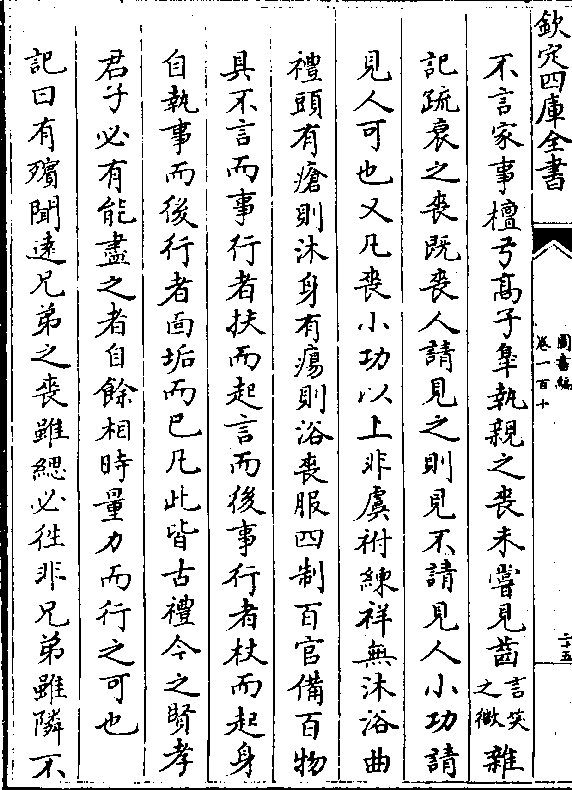 欽定四庫全書
圖書編
卷一百十
二十五
不言家事檀弓髙子臯執親之喪未嘗見齒言笑之微雜
記疏衰之喪既喪人請見之則見不請見人小功請
見人可也又凡喪小功以上非虞祔練祥無沐浴曲
禮頭有瘡則沐身有瘍則浴喪服四制百官備百物
具不言而事行者扶而起言而後事行者杖而起身
自執事而後行者面垢而已凡此皆古禮今之賢孝
君子必有能盡之者自餘相時量力而行之可也
記曰有殯聞逺兄弟之喪雖緦必徃非兄弟雖隣不